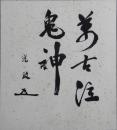 萬古泣
鬼神